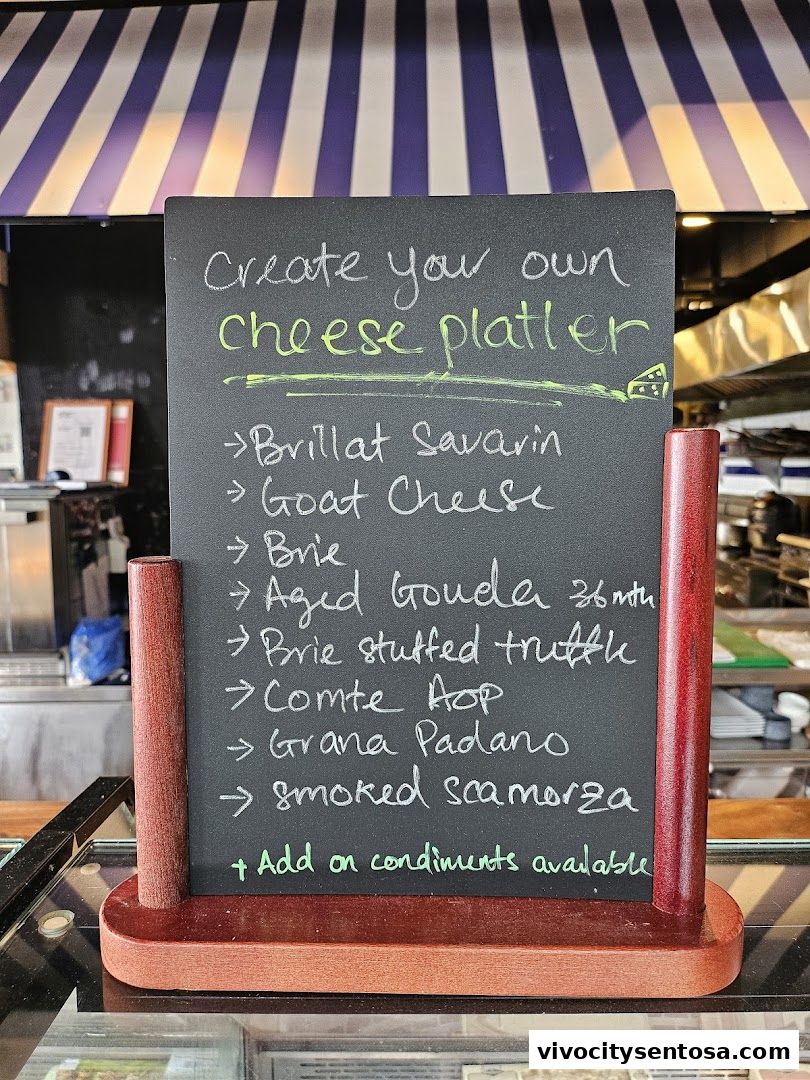 Create your own
cheese platter
→ Brillat Savarin
→ Goat Cheese
→ Brie
→ Aged Gouda 36 mth
→ Brie stuffed truffle
→ Comte AOP
→ Grana Padano
→ smoked scamorza
+ Add on condiments available
vivocitysentosa.com